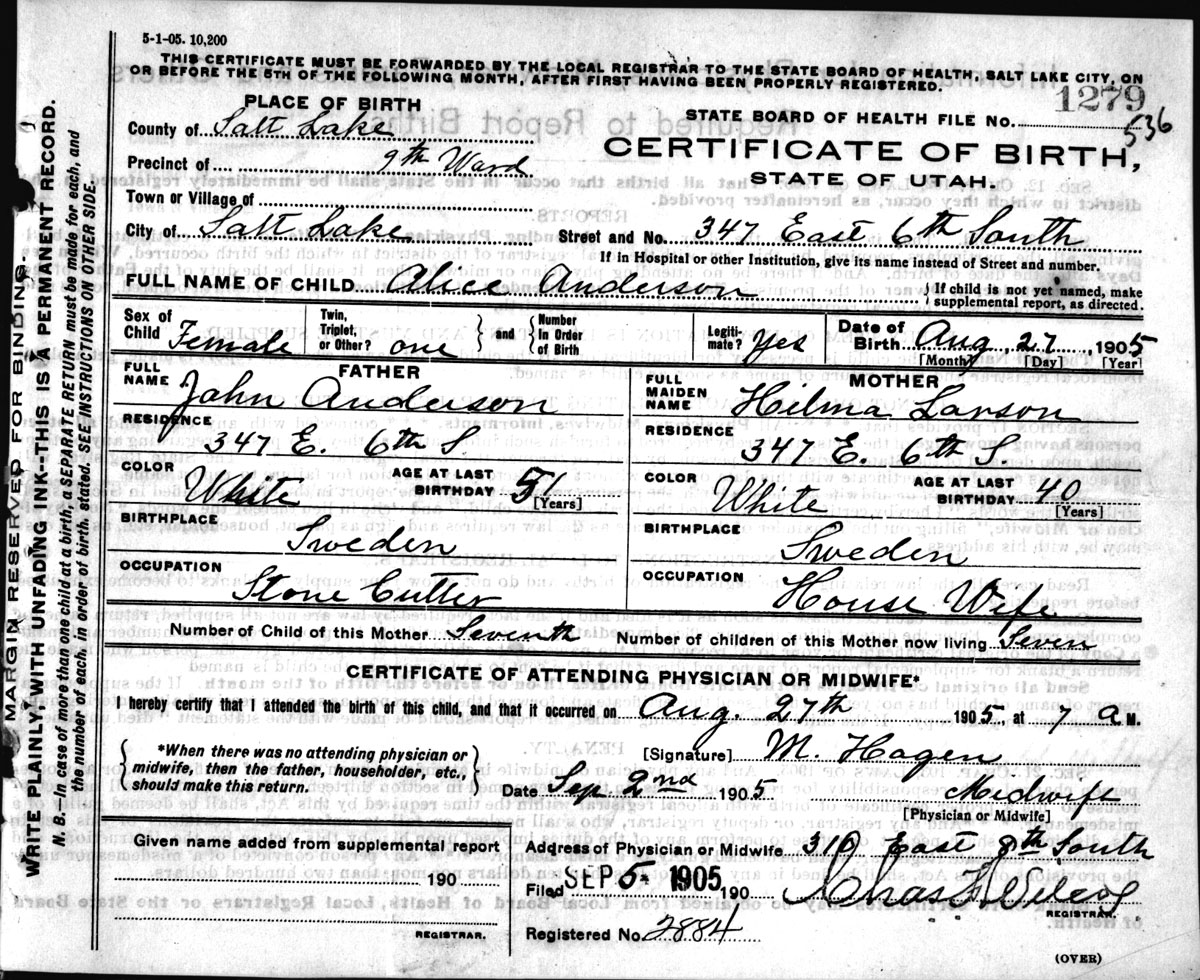 5-1-05. 10,200
THIS CERTIFICATE MUST BE FORWARDED BY THE LOCAL REGISTRAR TO THE STATE BOARD OF HEALTH, SALT LAKE CITY, ON
OR BEFORE THE 5TH OF THE FOLLOWING MONTH, AFTER FIRST HAVING BEEN PROPERLY REGISTERED.
PLACE OF BIRTH
STATE BOARD OF HEALTH FILE NO. 1279
536
County of Salt Lake
CERTIFICATE OF BIRTH,
Precinct of 9th Ward
STATE OF UTAH.
Town or Village of
City of Salt Lake Street and No. 347 East 6th South
If in Hospital or other Institution, give its name instead of Street and number.
FULL NAME OF CHILD Alice Anderson { If child is not yet named, make
supplemental report, as directed.
Sex of Child Female Twin, Triplet, or Other? one } and { Number In Order of Birth Legiti- mate? Yes Date of Birth Aug 27, 1905
[Month] [Day] [Year]
FATHER
FULL NAME John Anderson
RESIDENCE
347 E. 6th S.
COLOR White AGE AT LAST BIRTHDAY 51 [Years]
BIRTHPLACE
Sweden
OCCUPATION
Stone Cutter
MOTHER
FULL MAIDEN NAME Hilma Larson
RESIDENCE
347 E. 6th S.
COLOR White AGE AT LAST BIRTHDAY 40 [Years]
BIRTHPLACE
Sweden
OCCUPATION
House Wife
Number of Child of this Mother Seventh Number of children of this Mother now living Seven
CERTIFICATE OF ATTENDING PHYSICIAN OR MIDWIFE*
I hereby certify that I attended the birth of this child, and that it occurred on Aug. 27th 1905, at 7 a M.
{ *When there was no attending physician or
midwife, then the father, householder, etc.,
should make this return. }
[Signature] M. Hagen
Date Sep 2nd 1905. Midwife
[Physician or Midwife]
Given name added from supplemental report
190
REGISTRAR.
Address of Physician or Midwife 310 East 8th South
Filed SEP 5 1905 190 Chas
REGISTRAR.
Registered No. 2884
(OVER)
MARGIN RESERVED FOR BINDING.
WRITE PLAINLY WITH UNFADING INK--THIS IS A PERMANENT RECORD.
N. B.—In case of more than one child at a birth, a SEPARATE RETURN must be made for each, and
the number of each, in order of birth, stated. SEE INSTRUCTIONS ON OTHER SIDE.